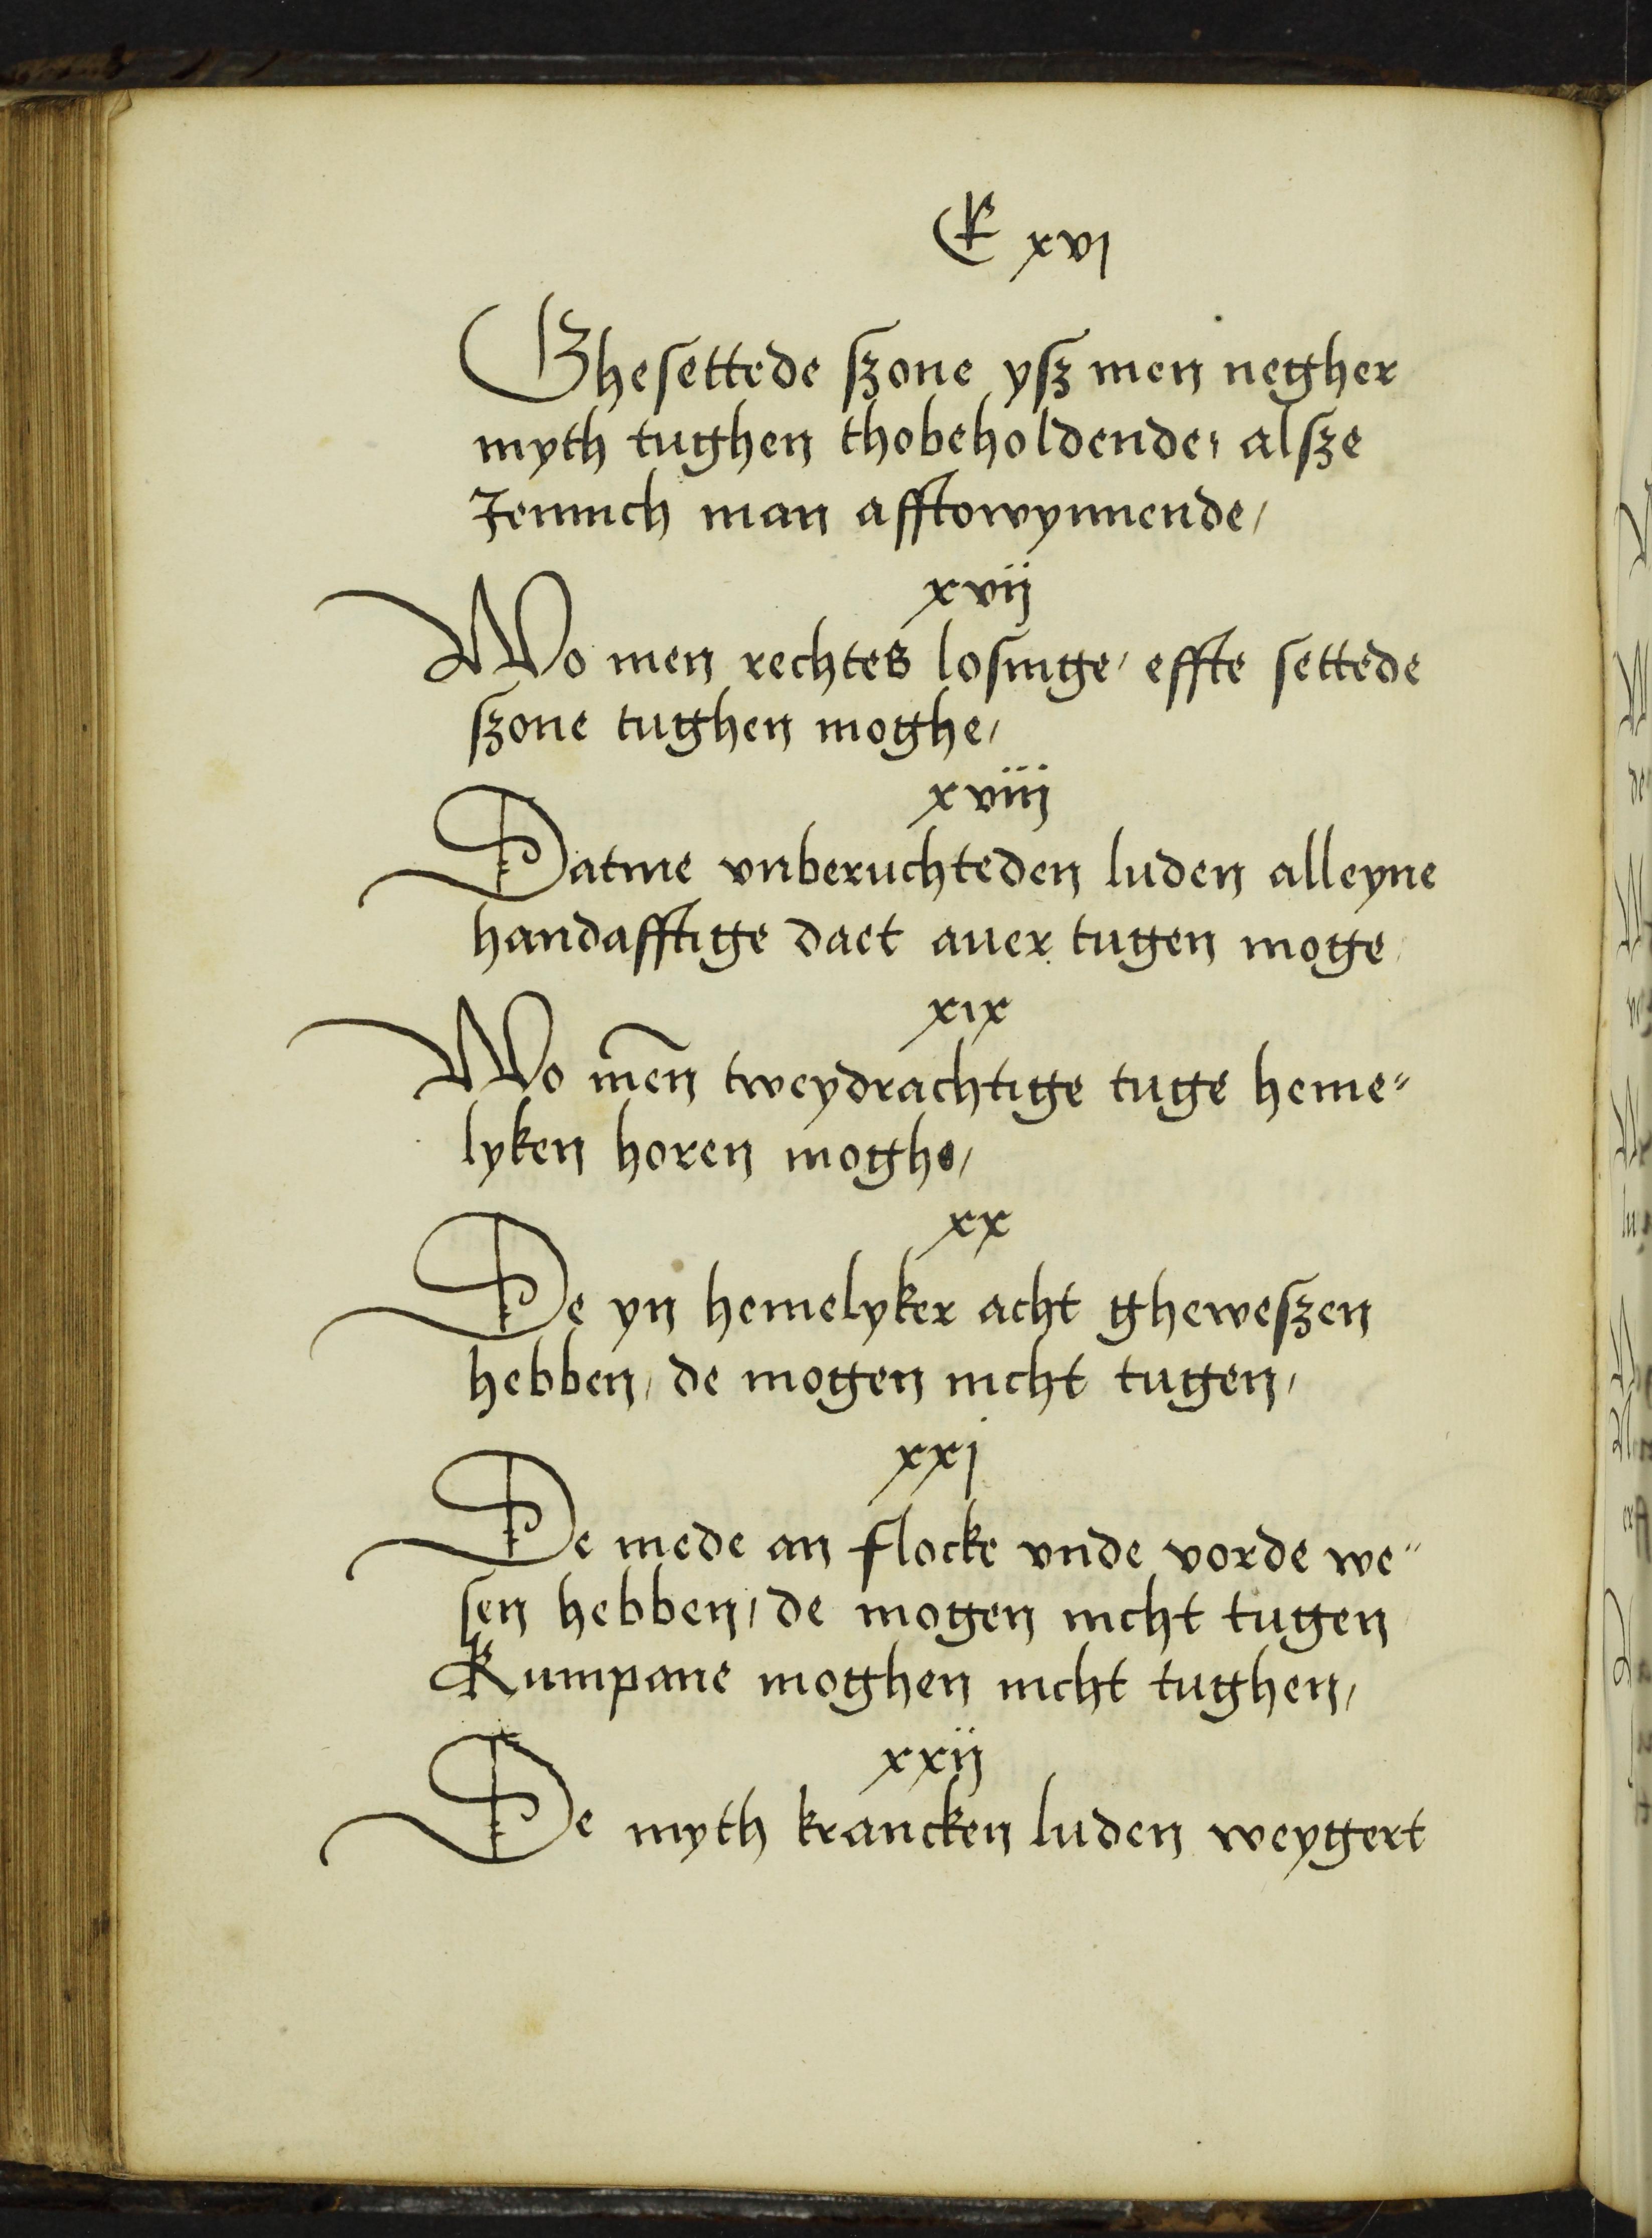 E xvi
Ghesettede szone ysz men negher
myth tughen thobeholdende, alsze
Jennich man afftowynnende/
xvij
Wo men rechtes losinge/ effte settede
szone tughen moghe/
xviij
Datme vnberuchteden luden alleyne
handafftige daet auer tugen moge
xix
Wo men̄ tweydrachtige tuge heme⸗
lyken horen moghe/
xx
De yn hemelyker acht gheweszen
hebben/ de mogen nicht tugen/
xxi
De mede an flocke vnde vorde we⸗
sen hebben/ de mogen nicht tugen
Kumpane moghen nicht tughen/
xxij
De myth krancken luden weygert